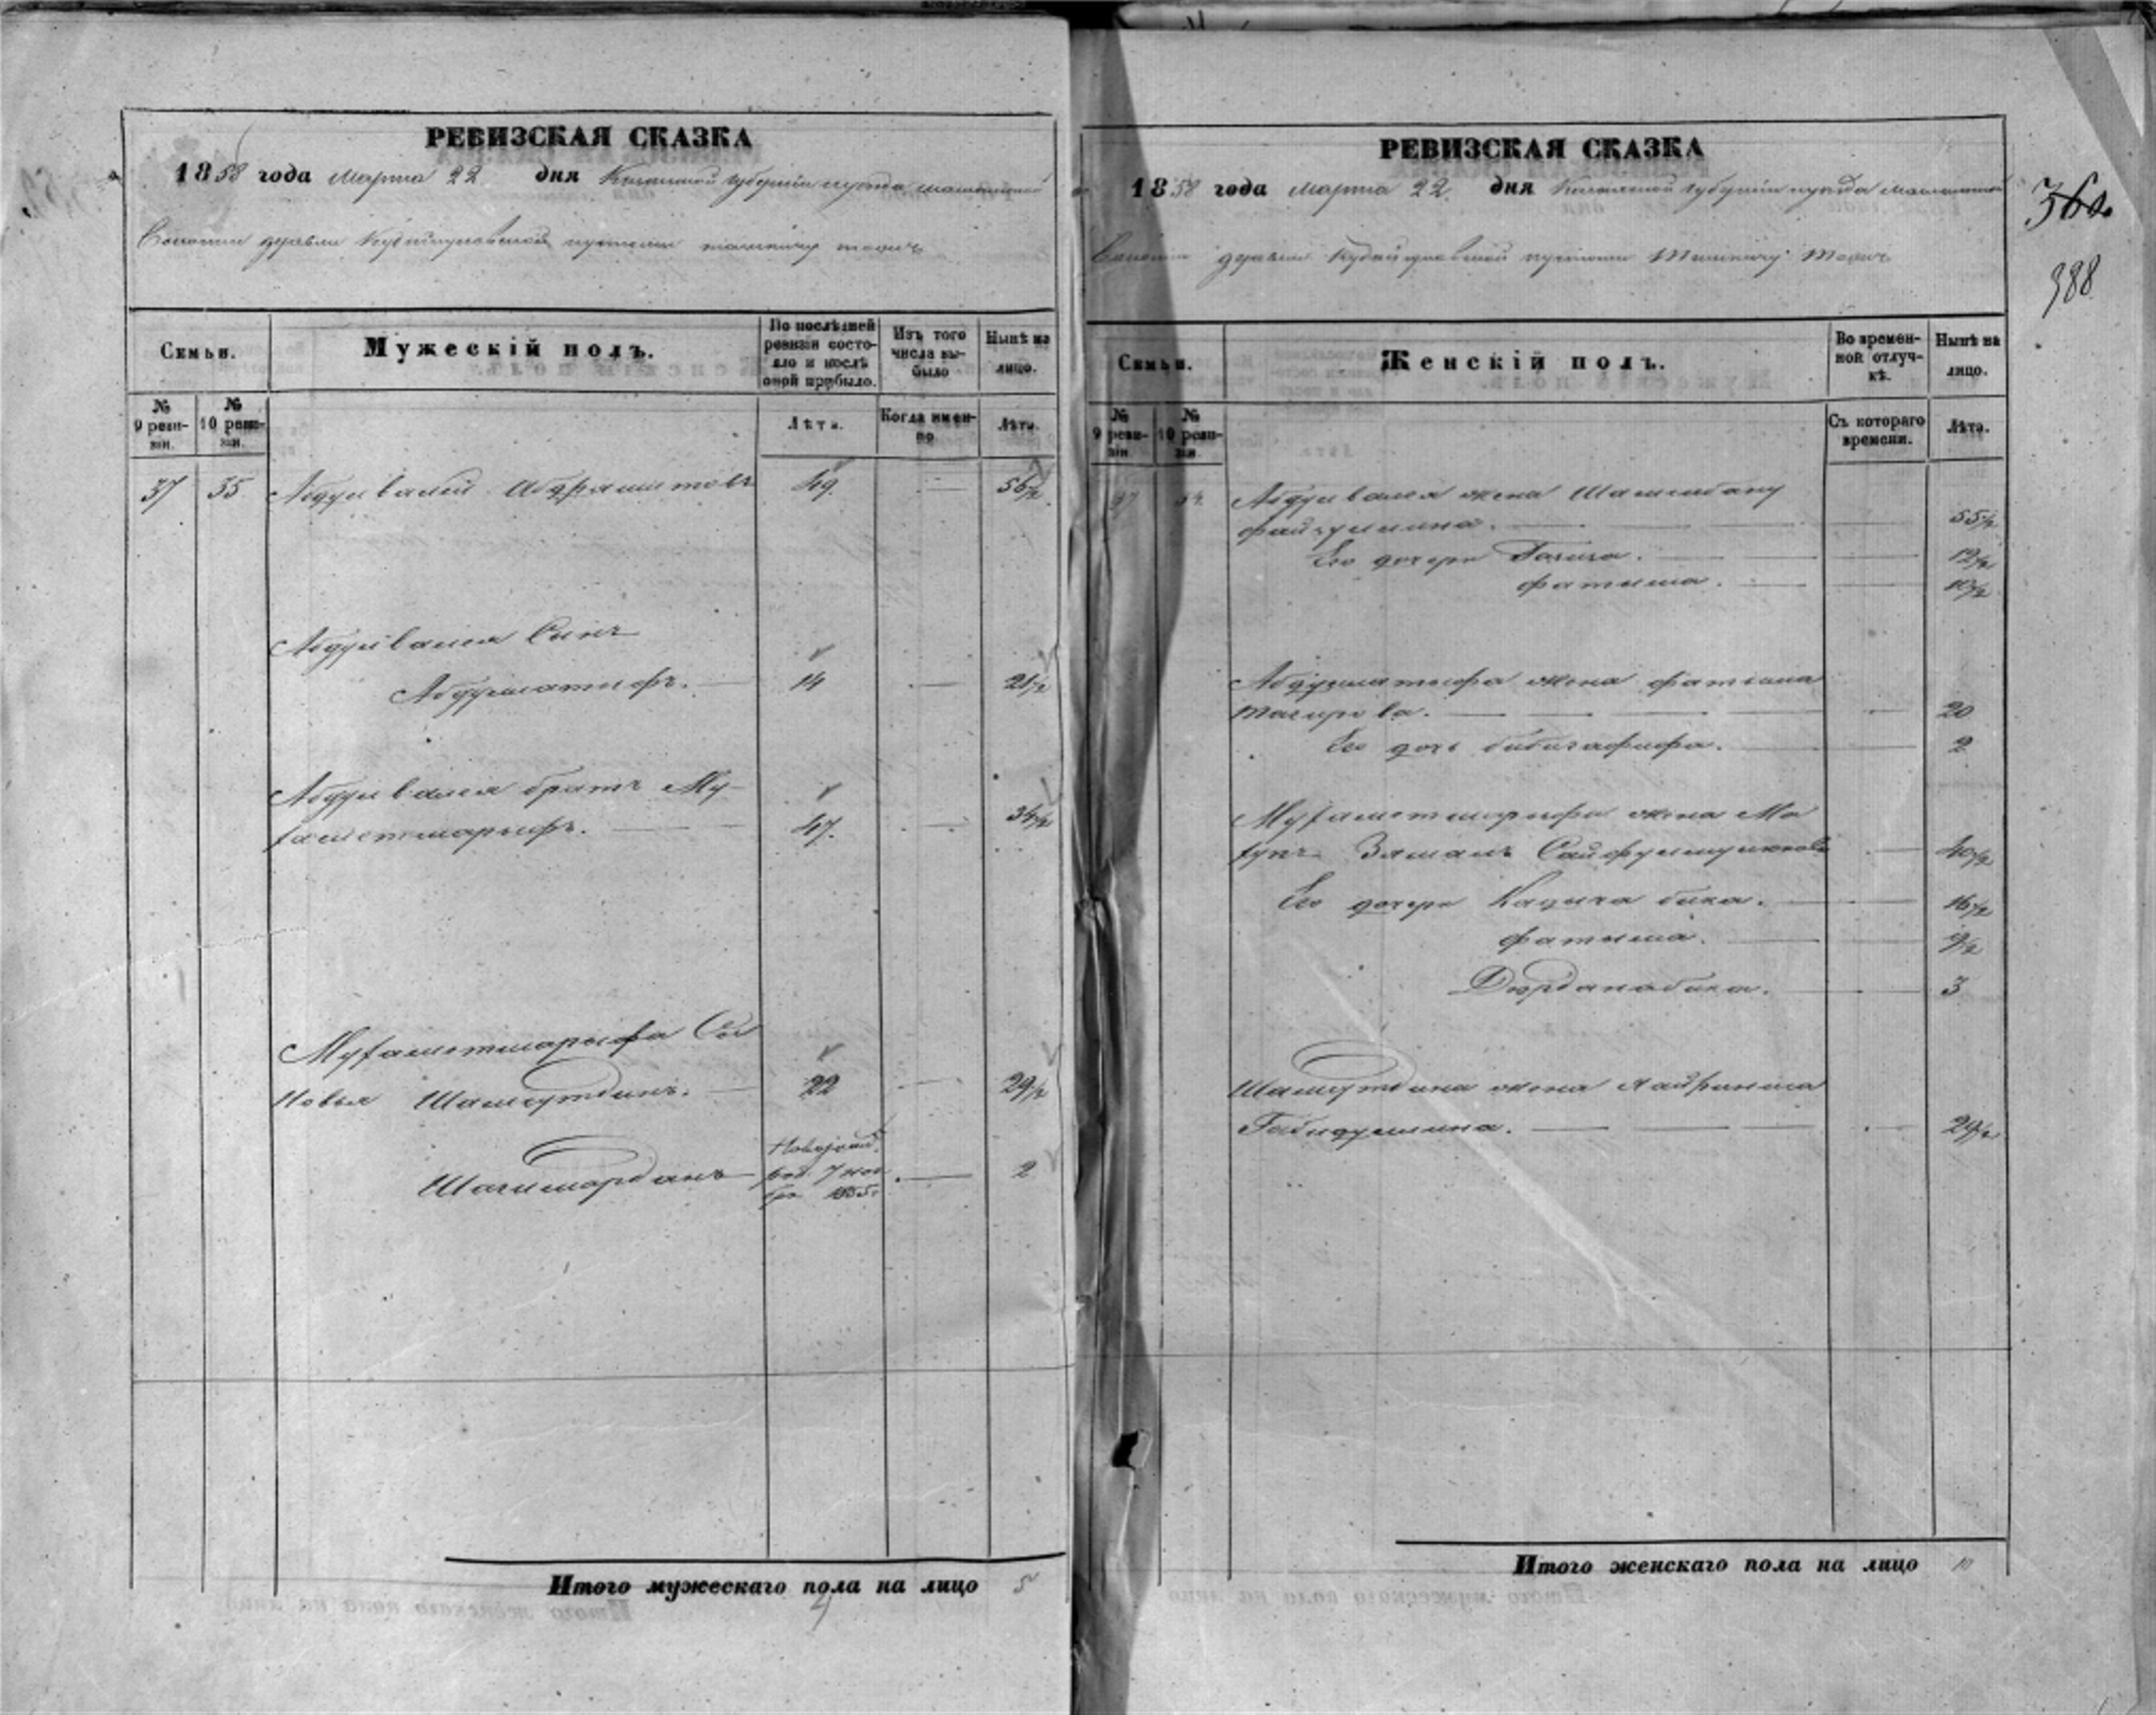 РЕВИЗСКАЯ СКАЗКА
1858 года Марта 22 дня Казанской губерніи уѣзда
деревни
Семьи.
Мужескій полъ.
По послѣдней ревизіи состояло и послѣ оной прибыло.
Изъ того числа выбыло
Нынѣ на лицо.
№ 9 ревизіи.
№ 10 ревизіи.
Лѣта.
Когда именно
Лѣта.
37 35 Абдулвалей Абдрашитовъ 49. 56 1/2
Абдулвалея Сынъ
Абдуллатифъ. 14 21 1/2
Абдулвалея братъ Му-
хаметшарыфъ. 47. 34 1/2
Мухаметшарыфа Сы
новья Шамсутдинъ. 22 29 1/2
Шагимарданъ 2
род. 7 ноя
бря 1855г
Итого мужескаго пола на лицо 5
РЕВИЗСКАЯ СКАЗКА
1858 года Марта 22 дня Казанской губерніи уѣзда
деревни
360
388
Семьи.
Женскій полъ.
Во временной отлучкѣ.
Нынѣ на лицо.
№ 9 ревизіи.
№ 10 ревизіи.
Съ котораго времени.
Лѣта.
37 Абдулвалея жена Шамсибану
Файзуллина. 55 1/2
Его дочери 12 1/2
Фатыма. 10 1/2
Абдуллатыфа жена Фатыма
Тагирова. 20
Его дочь Бибигафифа. 2
Мухаметшарыфа жена Ма
Заманъ 40 1/2
Его дочери бика. 16 1/2
Фатыма. 9 1/2
Дюрданабика. 3
Шамсутдина жена
Габидуллина. 29 1/2
Итого женскаго пола на лицо 10